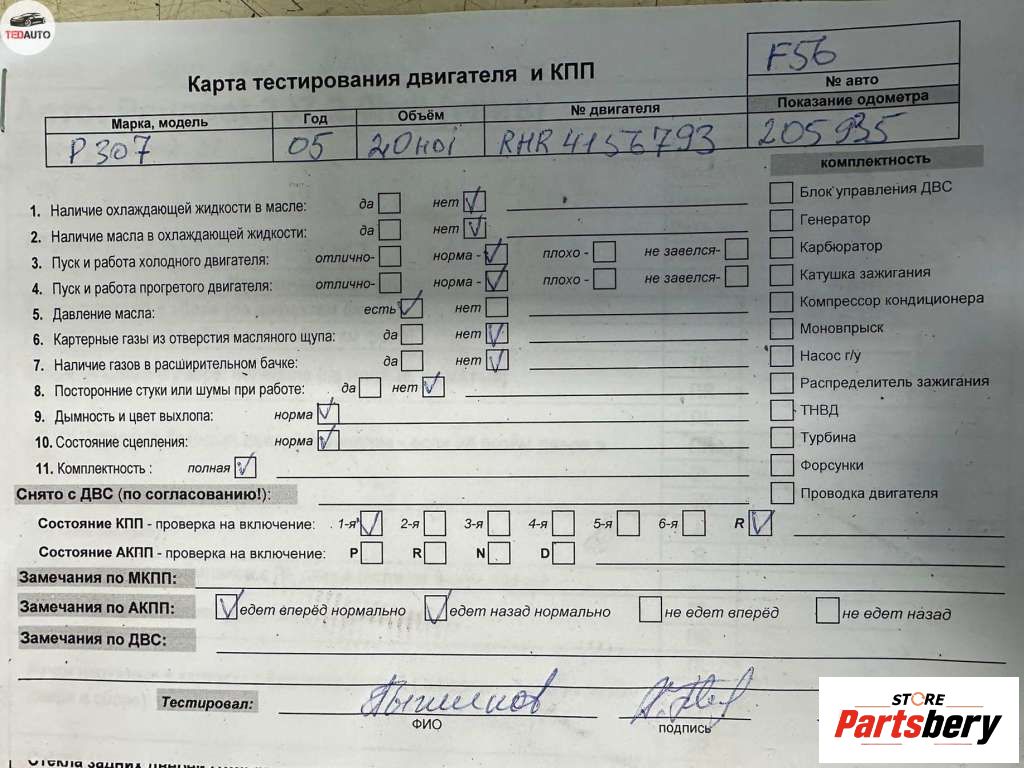 TEDAUTO
F56
№ авто
Карта тестирования двигателя и КПП
Показание одометра
205 935
Марка, модель Год Объём № двигателя
P 307 05 2.0HDi RHR 4156793
комплектность
1. Наличие охлаждающей жидкости в масле: да нет ✓
2. Наличие масла в охлаждающей жидкости: да нет ✓
3. Пуск и работа холодного двигателя: отлично- норма - ✓ плохо - не завелся-
4. Пуск и работа прогретого двигателя: отлично- норма - ✓ плохо - не завелся-
5. Давление масла: есть ✓ нет
6. Картерные газы из отверстия масляного щупа: да нет ✓
7. Наличие газов в расширительном бачке: да нет ✓
8. Посторонние стуки или шумы при работе: да нет ✓
9. Дымность и цвет выхлопа: норма ✓
10. Состояние сцепления: норма ✓
11. Комплектность : полная ✓
Блок управления ДВС
Генератор
Карбюратор
Катушка зажигания
Компрессор кондиционера
Моновпрыск
Насос г/у
Распределитель зажигания
ТНВД
Турбина
Форсунки
Проводка двигателя
Снято с ДВС (по согласованию!):
Состояние КПП - проверка на включение: 1-я ✓ 2-я 3-я 4-я 5-я 6-я R ✓
Состояние АКПП - проверка на включение: P R N D
Замечания по МКПП:
Замечания по АКПП: ✓ едет вперёд нормально ✓ едет назад нормально не едет вперёд не едет назад
Замечания по ДВС:
Тестировал:
ФИО подпись
STORE
Partsbery